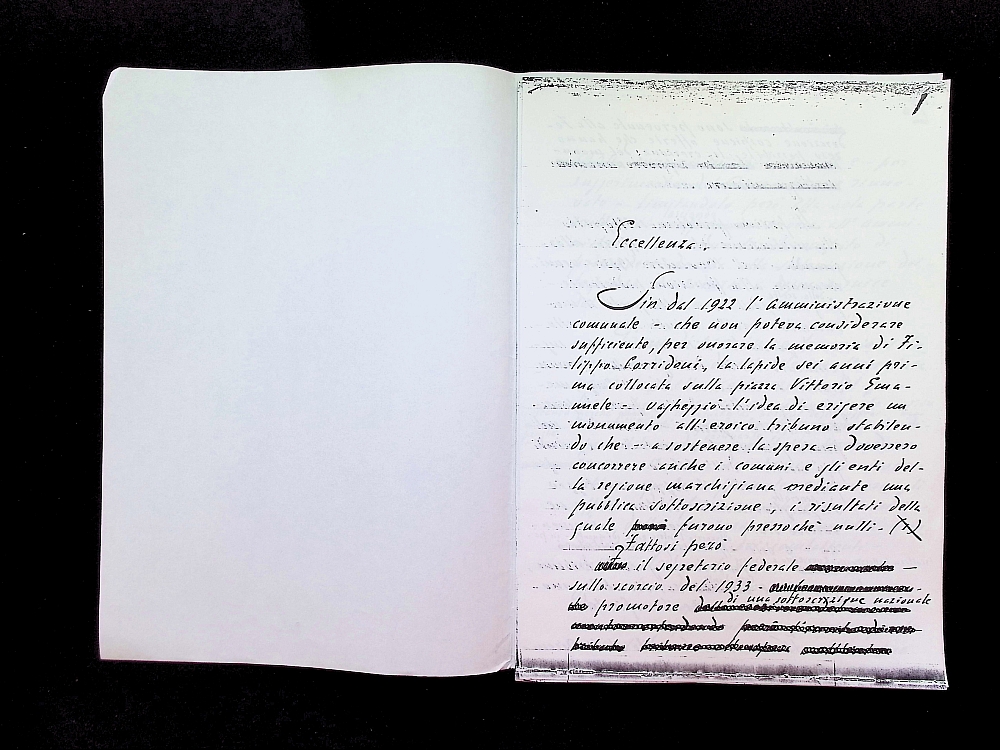 1
Eccellenza.
Sin dal 1922 l'amministrazione
comunale - che non poteva considerare
sufficiente, per onorare la memoria di Fi-
lippo Corridoni, la lapide sei anni pri-
ma collocata sulla piazza Vittorio Ema-
nuele - vagheggiò l'idea di erigere un
monumento all'eroico tribuno stabilen-
do che - a sostenere la spesa - dovessero
concorrere anche i comuni e gli enti del-
la regione marchigiana mediante una
pubblica sottoscrizione, i risultati della
quale furono pressoché nulli. (1)
Fattosi però
il segretario federale —
sullo scorcio del 1933 -
di una sottoscrizione nazionale
promotore